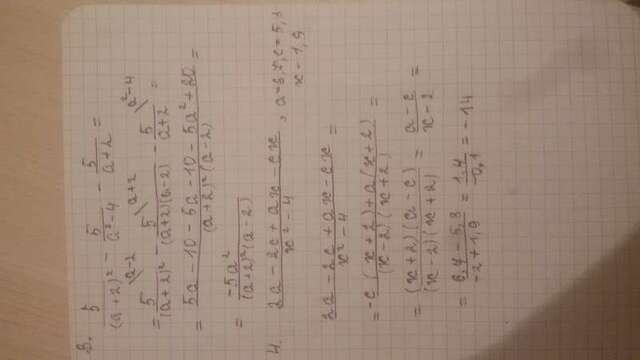 3.
5/(a+2)² - 5/(a²-4) - 5/(a+2) =
= 5\a-2/(a+2)² - 5\a+2/(a+2)(a-2) - 5\a²-4/(a+2) =
= (5a-10-5a-10-5a²+20)/((a+2)²(a-2)) =
= -5a²/((a+2)²(a-2))
4. (2a-2c+ax-cx)/(x²-4), a=6,7, c=5,3
x=1,9
(2a-2c+ax-cx)/(x²-4) =
= (-c(x+2)+a(x+2))/((x-2)(x+2)) =
= ((x+2)(a-c))/((x-2)(x+2)) = (a-c)/(x-2) =
= (6,7-5,3)/(-2+1,9) = 1,4/-0,1 = -14